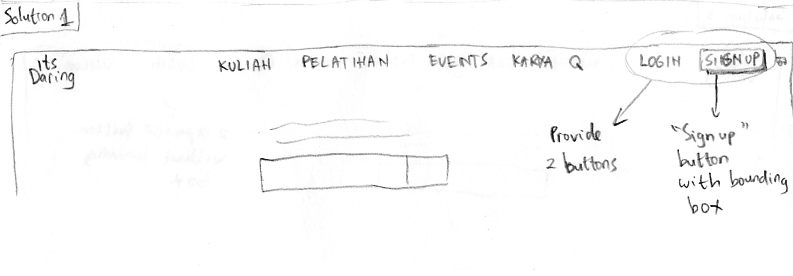 Solution 1
Its
Daring
KULIAH PELATIHAN EVENTS KARYA Q LOGIN SIGNUP
Provide
2 buttons
"Sign up"
button
with bounding
box